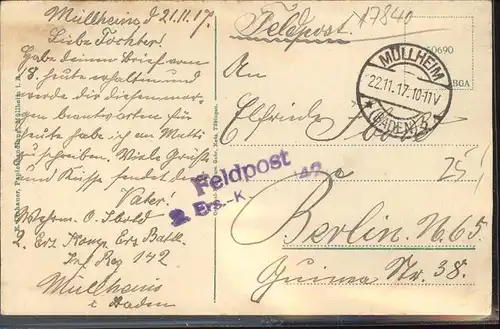 Müllheim d 21.11.17.
Liebe Tochter!
Habe deinen Brief vom
18. heute erhalten und
werde dir diesen morgen
beantworten für
heute habe ich an Mutti
zu schreiben. Viele Grüße
und Küsse sendet dir
Vater.
O. Ibold
2. Ers. Komp. Ers. Batl.
Inf. Reg 142
Müllheim
i Baden
Feldpost.
17840
An
Elfriede Ibold
Berlin. N. 65
Guinea Str. 38.
25.-
MÜLLHEIM
22.11.17.10-11V
(BADEN)
Feldpost
2. Ers.-K
142
60690
BGA